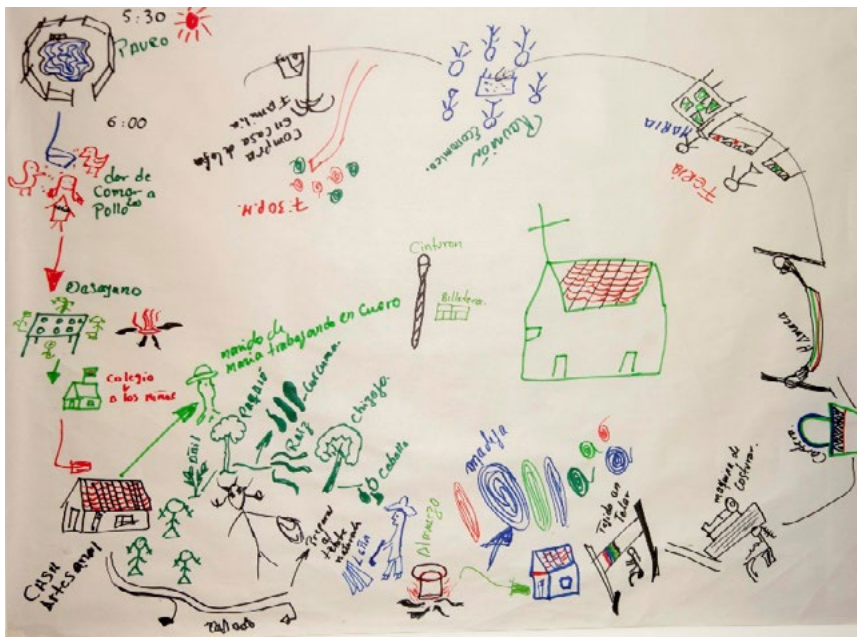 5:30
PAURO
6:00
dar de
Comer a
los
Pollo
Desayuno
colegio
a los niñas
marido de
maria trabajando en cuero
CASA
Artesanal
Añil
Raiz
Curcuma
Chizajo
Caballo
Prepara
tinte
natural
Leña
Almuerzo
madeja
Tejido en Telar
maquina de
costurar.
Cartera
Hamaca
FERIA
MARIA
Reunión
Economico.
Compra
en casa de la
Familia
7:30 P.M.
Cinturon
Billetera.